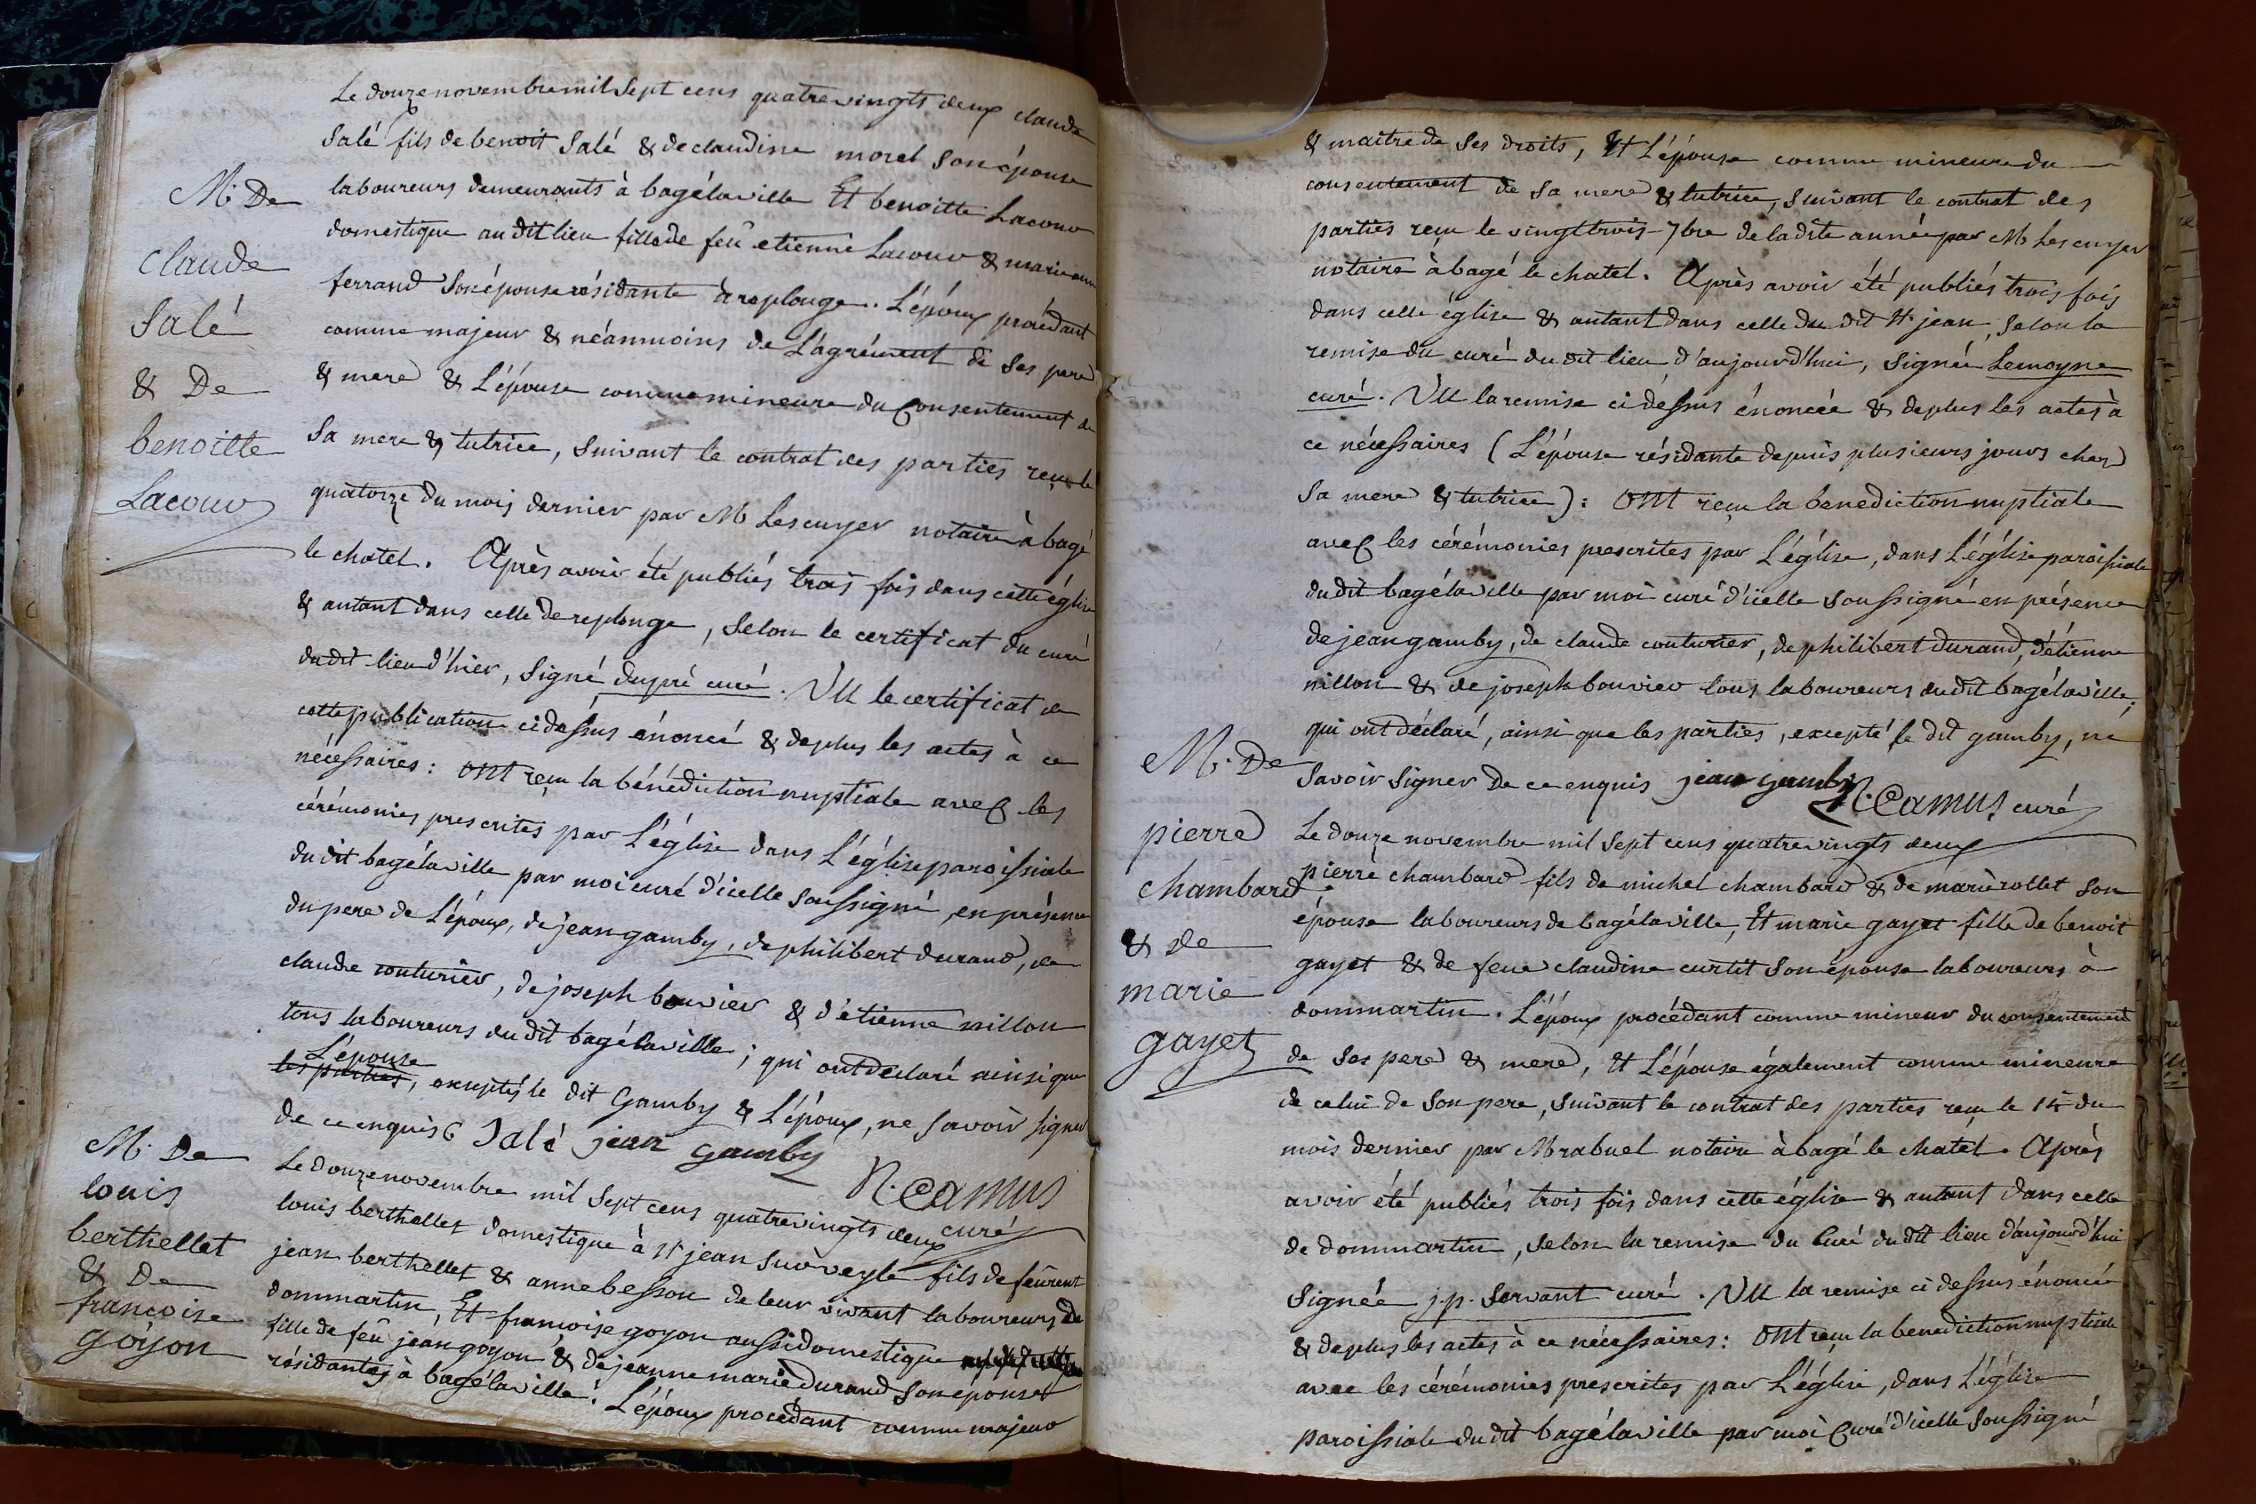 Le douze novembre mil sept cens quatrevingts deux claude
Salé fils de benoit Salé & de claudine morel son épouse
laboureurs demeurants à bagélaville Et benoitte Lacour
domestique au dit lieu fille de feû etienne Lacour & marieanne
ferrand son épouse résidante à replonge. L'époux procédant
comme majeur & néanmoins de L'agrément de ses pere
& mere & L'épouse comme mineure du Consentement de
sa mere & tutrice, suivant le contrat des parties reçu le
quatorze du mois dernier par M Lescuyer notaire à bagé
le chatel. Après avoir été publiés trois fois dans cette église
& autant dans celle de replonge, selon le certificat du curé
du dit lieu d'hier, signé dupré curé. VU le certificat de
cette publication cidessus énoncé & deplus les actes à ce
nécessaires: ONt reçu la bénédiction nuptiale avec les
cérémonies prescrites par L'église dans L'église paroissiale
du dit bagélaville par moi curé d'icelle soussigné, en présence
du pere de L'époux, de jean gamby, de philibert durand, de
claude couturier, de joseph bouvier & d'étienne nillon
tous laboureurs du dit bagélaville; qui ont déclaré ainsi que
L'épouse
les parties, exceptés le dit Gamby & L'époux, ne savoir signer
de ce enquis C Salé jean gamby
N. Camus
curé
M. De
claude
Salé
& De
benoitte
Lacour
M. De
louis
berthellet
& De
françoise
goyon
Le douze novembre mil sept cens quatrevingts deux
louis berthellet domestique à St jean sur veyle fils de feûrent
jean berthellet & anne besson de leur vivant laboureurs de
dommartin, Et françoise goyon aussi domestique
fille de feû jean goyon & de jeanne marie Durand son epouse
résidantes à bagélaville. L'époux procédant comme majeur
& maitre de ses droits, Et L'épouse comme mineure du
consentement de sa mere & tutrice, suivant le contrat des
parties reçu le vingttrois 7bre de ladite année par M Lescuyer
notaire à bagé le chatel. Après avoir été publiés trois fois
dans cette église & autant dans celle du dit St jean selon la
remise du curé du dit lieu d'aujourd'hui, signée Lemoyne
curé. VU la remise ci dessus énoncée & deplus les actes à
ce nécessaires (L'épouse résidante depuis plusieurs jours chez
sa mere & tutrice): ONt reçu la benediction nuptiale
avec les cérémonies prescrites par L'église, dans L'église paroissiale
du dit bagélaville par moi curé d'icelle soussigné en présence
de jean gamby, de claude couturier, de philibert durand, d'étienne
nillon & de joseph bouvier tous laboureurs du dit bagélaville;
qui ont déclaré, ainsi que les parties, excepté le dit gamby, ne
savoir signer de ce enquis jean gamby
N. Camus curé
M. De
pierre
chambard
& de
marie
gayet
Le douze novembre mil sept cens quatrevingts deux
pierre chambard fils de michel chambard & de marie rollet son
épouse laboureurs de bagélaville, Et marie gayet fille de benoit
gayet & de feue claudine curtit son épouse laboureurs à
dommartin. L'époux procédant comme mineur du consentement
de ses pere & mere, Et L'épouse également comme mineure
de celui de son pere, suivant le contrat des parties reçu le 14 du
mois dernier par M rabuel notaire à bagé le chatel. Après
avoir été publiés trois fois dans cette église & autant dans celle
de dommartin, selon la remise du Curé du dit lieu d'aujourd'hui
signée j.p. servant curé. VU la remise ci dessus énoncée
& deplus les actes à ce nécessaires: ONt reçu la benediction nuptiale
avec les cérémonies prescrites par L'église, dans L'église
paroissiale du dit bagélaville par moi Curé d'icelle soussigné